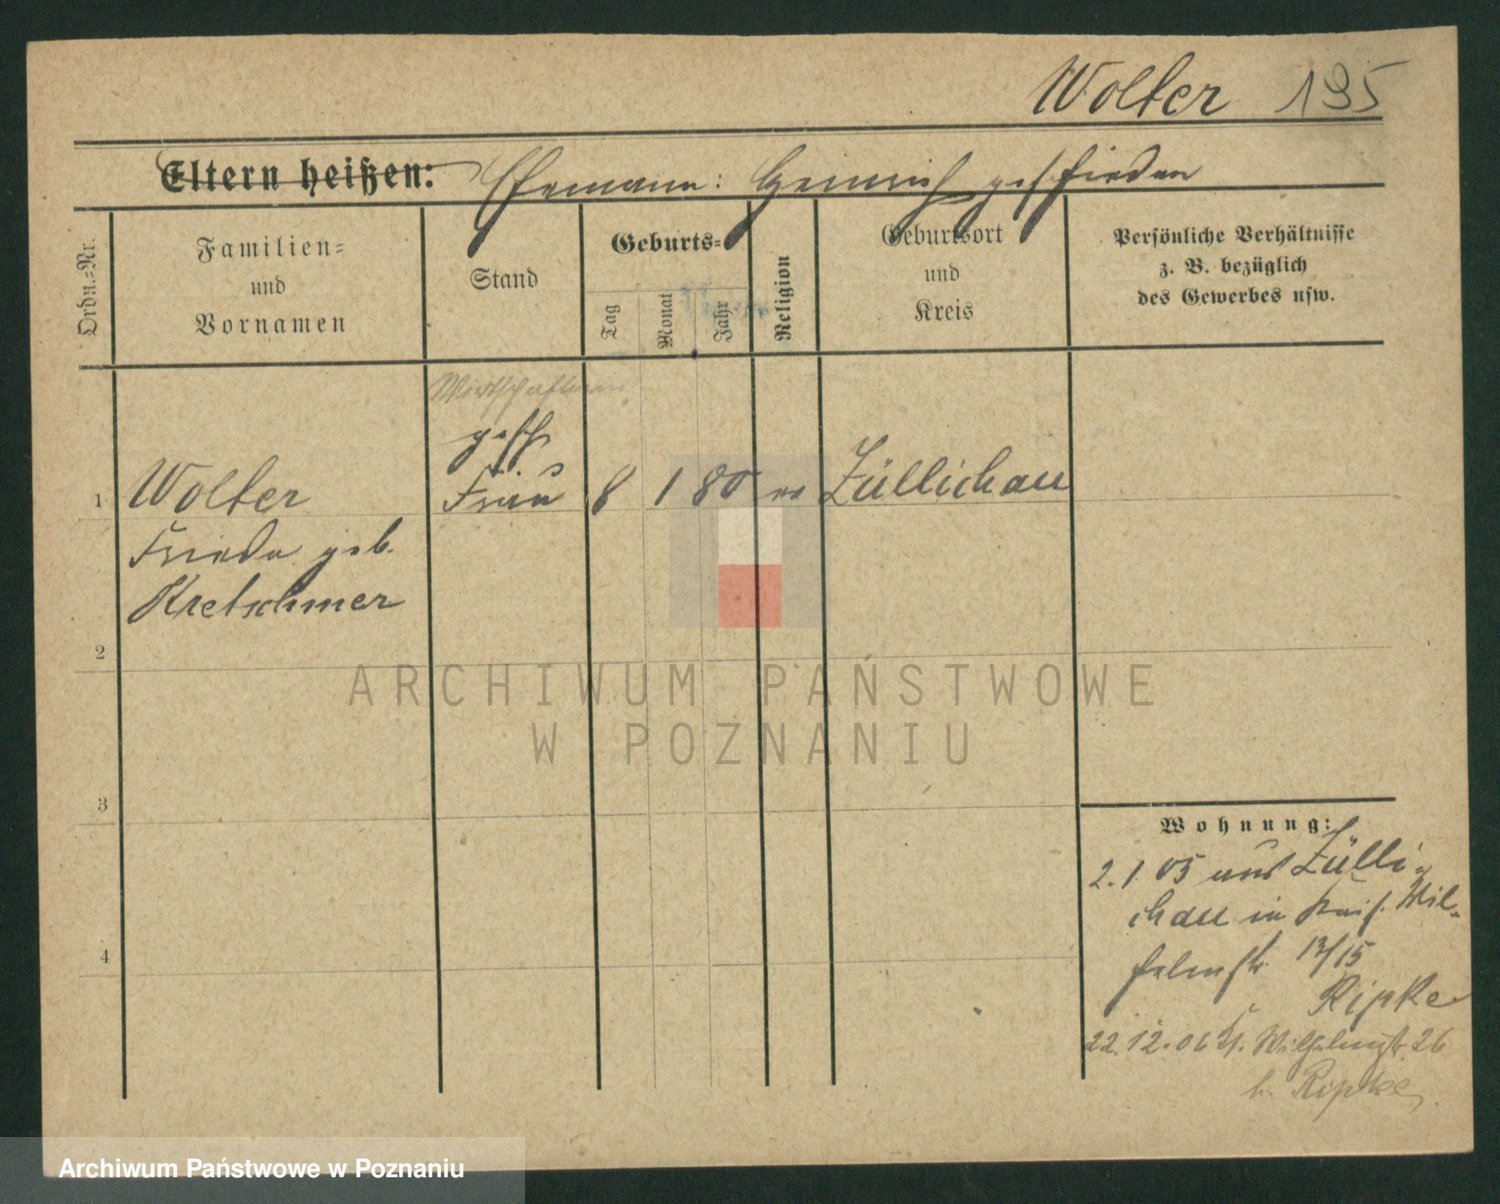 Wolter 195
Eltern heißen: Ehemann: Heinrich geschieden
Ordn.-Nr.
Familien-
und
Vornamen
Stand
Geburts-
Tag
Monat
Jahr
Religion
Geburtsort
und
Kreis
Persönliche Verhältnisse
z. B. bezüglich
des Gewerbes usw.
gesch
1 Wolter Frau 8 1 80 ev Züllichau
Frieda geb.
Kretschmer
2
3
4
Wohnung:
2.1.05 aus Zülli-
chau in Kais. Wil-
helmstr 13/15
Ripke
22.12.06 K. Wilhelmstr. 26
b. Ripke
ARCHIWUM PAŃSTWOWE
W POZNANIU
Archiwum Państwowe w Poznaniu